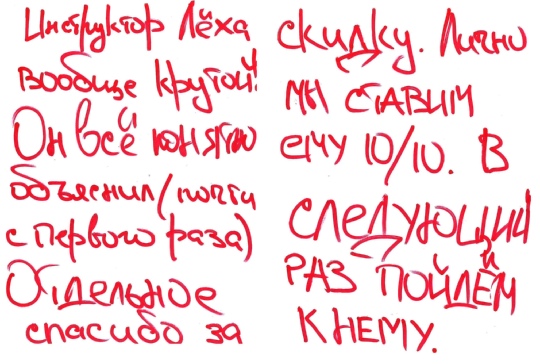 Инструктор Лёха
вообще крутой!
Он всё понятно
объяснил (почти
с первого раза)
Отдельное
спасибо за
скидку. Лично
мы ставим
ему 10/10. В
следующий
раз пойдём
к нему.